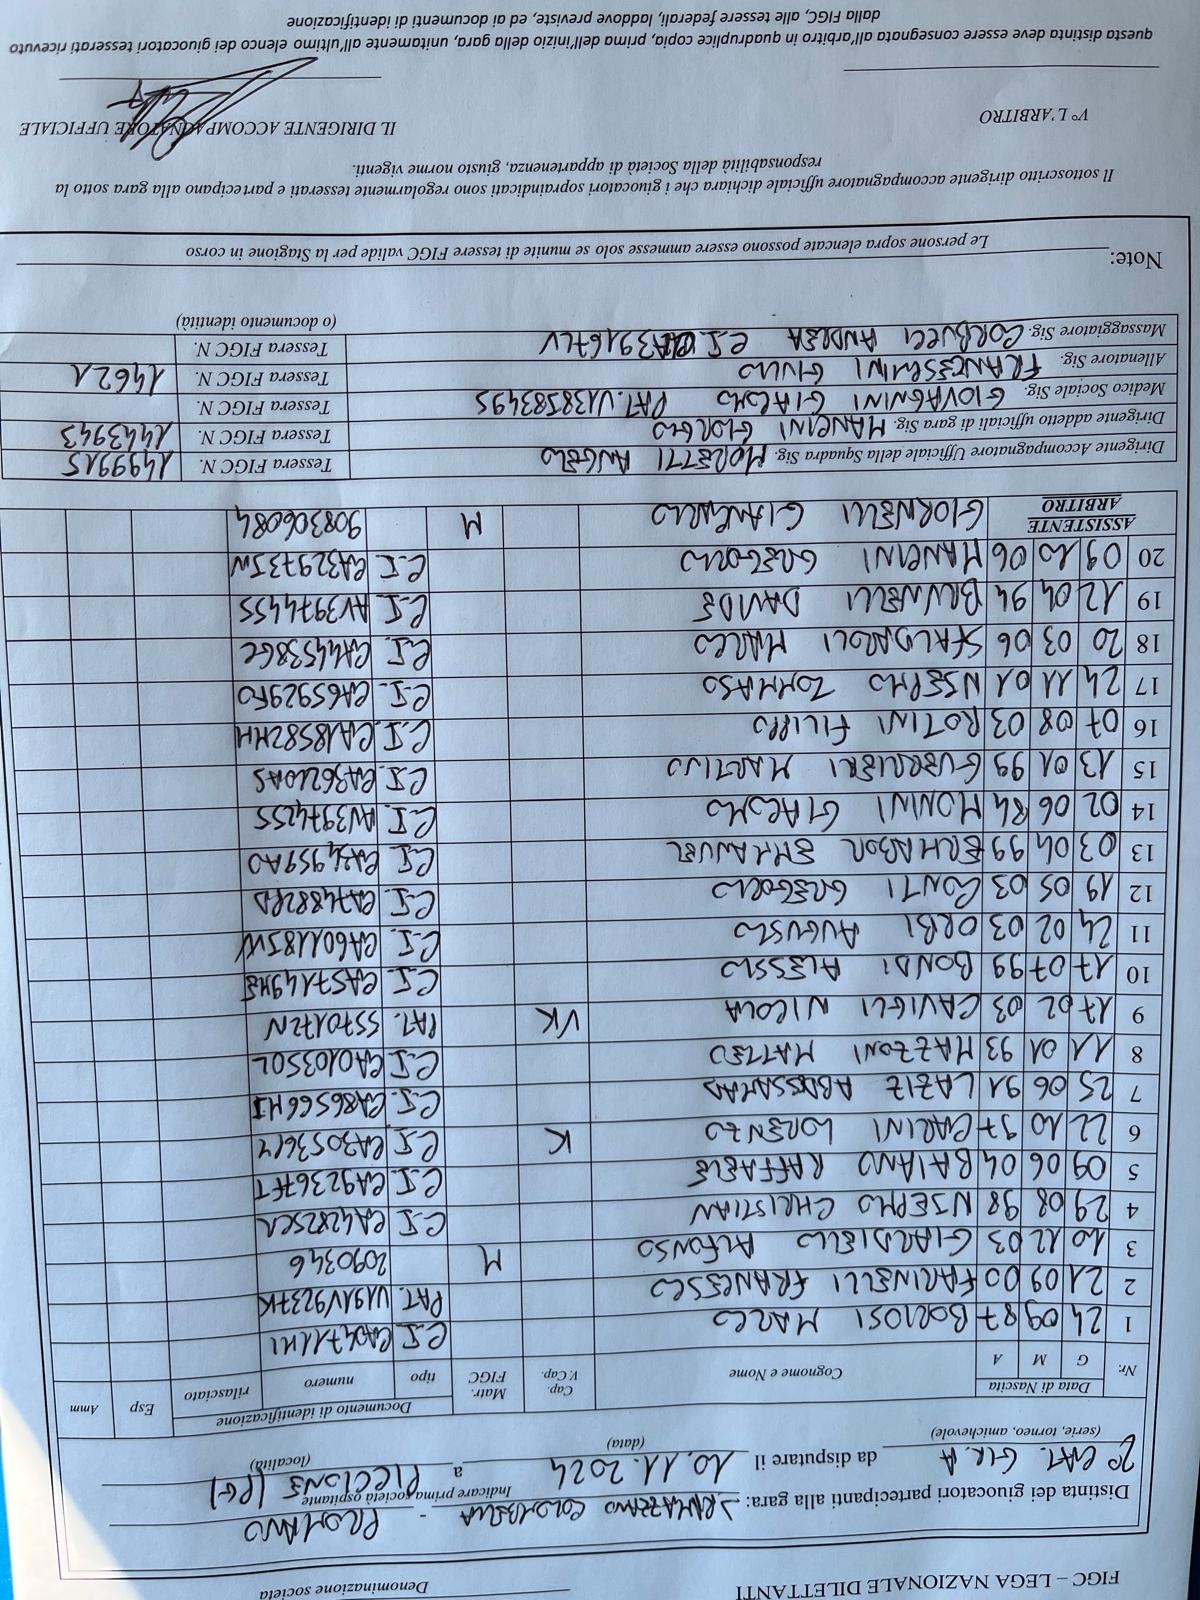 FIGC – LEGA NAZIONALE DILETTANTI
Denominazione società
Distinta dei giuocatori partecipanti alla gara: RAMAZZANO COLOMBELLA - PROMANO
Indicare prima società ospitante
2° CAT. GIR. A da disputare il 10.11.2024 a PICCIONE (PG)
(serie, torneo, amichevole) (data) (località)
Nr. Data di Nascita Cognome e Nome Cap. V. Cap. Matr. FIGC Documento di identificazione Esp Amm
G M A tipo numero rilasciato
1 24 09 87 BORIOSI MARCO C.I. CA04711HI
2 21 09 00 FARINELLI FRANCESCO PAT. U191V9237K
3 10 12 03 GIARDIELLO ALFONSO M 2090346
4 29 08 98 NJEPMO CHRISTIAN C.I. CA42825CR
5 09 06 04 BAIANO RAFFAELE C.I. CA92367FT
6 22 10 97 CARINI LORENZO K C.I.
7 25 06 91 LAZIZ ABDESSAMAD C.I. CA86566HI
8 11 01 93 MAZZONI MATTEO C.I. CA01035OL
9 17 02 03 CAVIGLI NICOLA VK PAT.
10 17 07 99 BONDI ALESSIO C.I. CA57149ME
11 24 02 03 ORBI AUGUSTO C.I. CA60118JW
12 19 05 03 CONTI GREGORIO C.I. CA74882PD
13 03 04 99 ERMABOR EMMANUEL C.I. CA34959AO
14 02 06 84 MONINI GIACOMO C.I. AV3974255
15 13 01 99 GUERRIERI MARTINO C.I. CA36210AS
16 07 08 03 ROTINI FILIPPO C.I. CA18582MH
17 24 11 01 NJEPMO TOMMASO C.I. CA65929FO
18 20 03 06 SFALDAROLI MARCO C.I. CA44538GC
19 12 04 94 BRUNELLI DAVIDE C.I. AV3974455
20 09 10 06 MANCINI GREGORIO C.I. CA32973JW
ASSISTENTE ARBITRO GIORNELLI GIANCARLO M 908306084
Dirigente Accompagnatore Ufficiale della Squadra Sig. MORETTI ANGELO Tessera FIGC N. 1499915
Dirigente addetto ufficiali di gara Sig. MANCINI GIORGIO Tessera FIGC N. 1443943
Medico Sociale Sig. GIOVAGNINI GIACOMO PAT. U13858349S Tessera FIGC N.
Allenatore Sig. FRANCESCHINI GIULIO Tessera FIGC N. 14621
Massaggiatore Sig. CORBUCCI ANDREA C.I. CA39167LV Tessera FIGC N.
(o documento identità)
Note:
Le persone sopra elencate possono essere ammesse solo se munite di tessere FIGC valide per la Stagione in corso
Il sottoscritto dirigente accompagnatore ufficiale dichiara che i giuocatori sopraindicati sono regolarmente tesserati e partecipano alla gara sotto la
responsabilità della Società di appartenenza, giusto norme vigenti.
V° L'ARBITRO IL DIRIGENTE ACCOMPAGNATORE UFFICIALE
questa distinta deve essere consegnata all'arbitro in quadruplice copia, prima dell'inizio della gara, unitamente all'ultimo elenco dei giuocatori tesserati ricevuto
dalla FIGC, alle tessere federali, laddove previste, ed ai documenti di identificazione